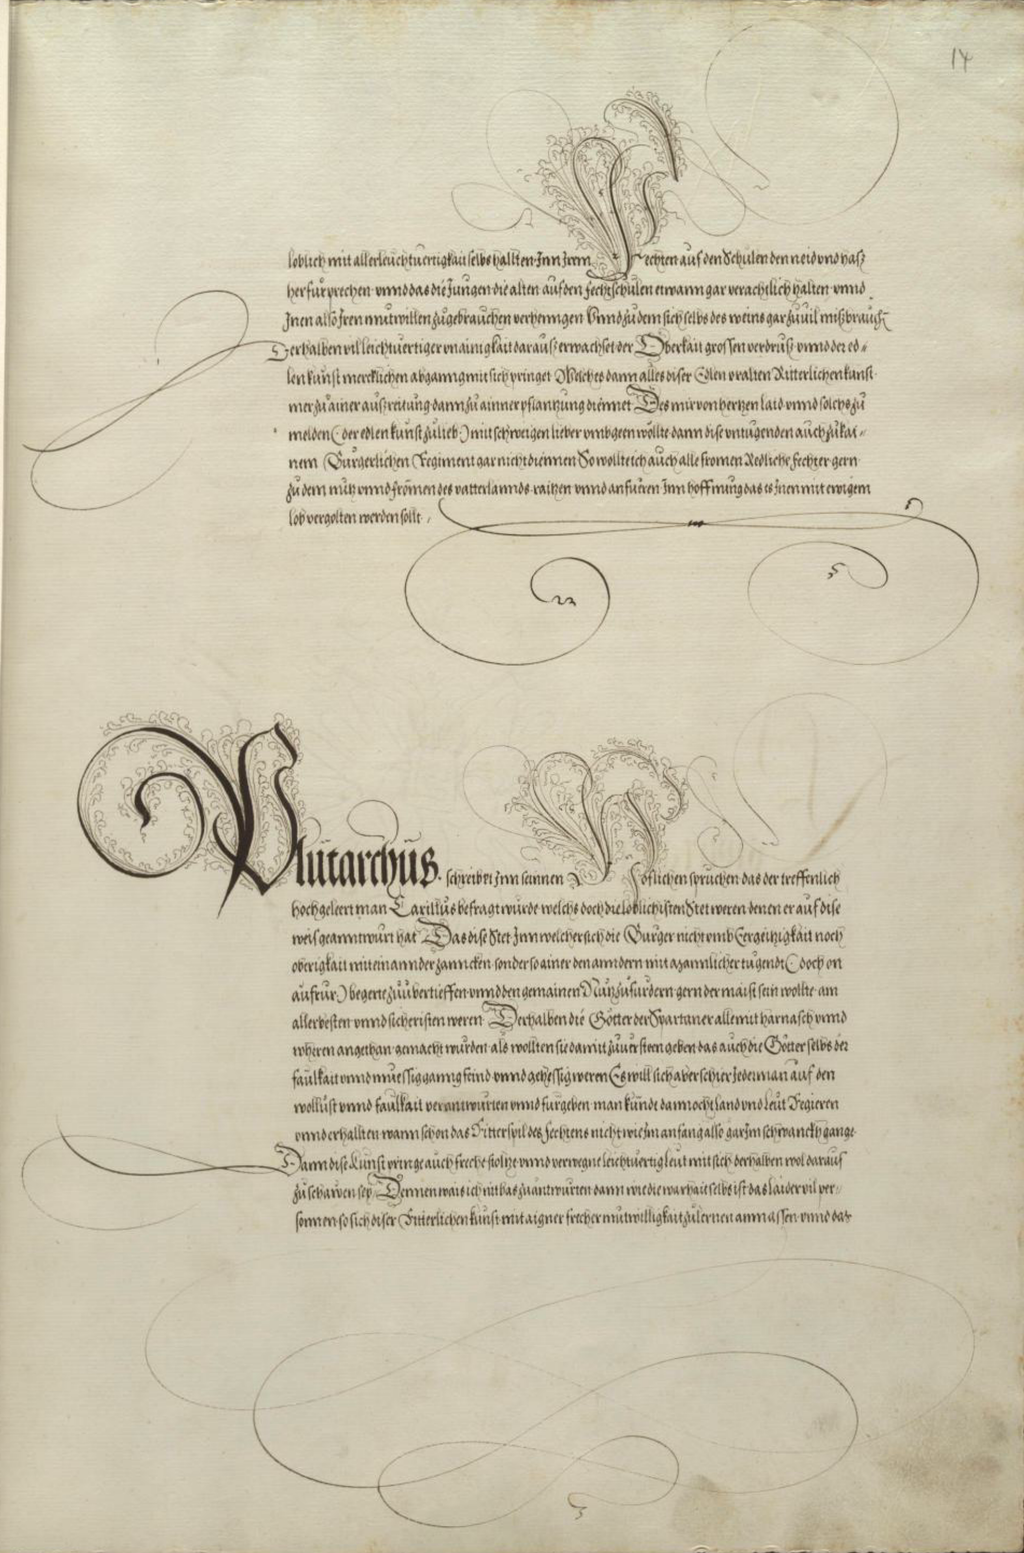 14
loblich mit aller leuchtuertigkait selbs hallten · Inn Irem Fechten auf den Schulen den neid vnd hasz
herfür prechen · vnnd das die Jungen die alten auf den fechtschulen etwann gar verachtlich halten · vnnd
Inen also Iren mutwillen zugebrauchen verhenngen Vnnd zu dem sich selbs des weins gar zuuil miszbrauch
Derhalben vil leichtuertiger vnainigkait darausz erwachset der Oberkait grossen verdrusz · vnnd der ed=
len kunst mercklichen abganng mit sich pringet Welches dann alles diser Edlen vralten Ritterlichen kunst
mer zu ainer ausz reitung · dann zu ainner pflantzung diennet Des mir von hertzen laid vnnd solchs zu
melden (der edlen kunst zu lieb) mit schweigen lieber vmbgeen wöllte dann dise vntugenden auch zu kai=
nem Burgerlichen Regiment gar nicht diennen So wollte ich auch alle fromen Redliche fechter gern
zu dem nutz vnnd fromen des vatterlannds · raitzen vnnd anfüeren Inn hoffnung das es Inen mit ewigem
lob vergolten werden sollt
Plutarchus · schreibt Inn seinnen Höflichen spruchen das der treffenlich
hochgeleert man Carillus befragt wurde welchs doch die loblichisten Stet weren denen er auf dise
weis geanntwurt hat Das dise Stet Inn welcher sich die Burger nicht vmb Eergeitzigkait noch
oberigkait miteinannder zanncken · sonder so ainer den anndern mit mannlicher tugendt (doch on
aufrur) begerte zuübertreffen · vnnd den gemainen Nutz zufurdern · gern der maist sein wollte · am
allerbesten vnnd sicheristen weren Derhalben die Götter der Spartaner alle mit harnasch vnnd
wheren angethan · gemacht wurden · als wollten sie damit zuuersteen geben das auch die Götter selbs der
faulkait vnnd muessigganng feind vnnd gehessig weren Es will sich aber schier Jederman auf den
wollust vnnd faulkait verantwurten vnnd furgeben · man kunde dannocht Land vnd Leut Regieren
vnnd erhallten · wann schon das Ritterspil des fechtens nicht wie Im anfang also gar Im schwanckh gange ·
Dann dise Kunst pringe auch freche stoltze · vnnd verwegne leichtuertig leut mit sich derhalben wol daraus
zu scharben sey Dennen wais ich nit bas zuantwurten · dann wie die warhait selbs ist das laider vil per=
sonnen so sich diser Ritterlichen kunst mit aigner frecher mutwilligkait zulernen anmassen · vnnd das